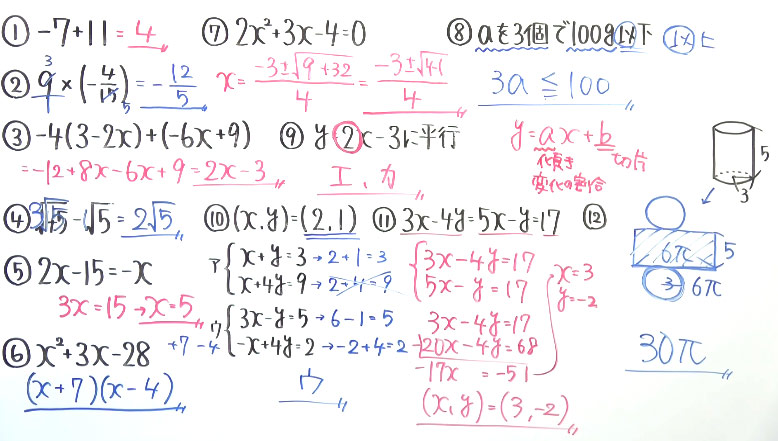 ① -7+11=4
② 9×(-4/15)=-12/5
3
1
5
③ -4(3-2x)+(-6x+9)
=-12+8x-6x+9=2x-3
④ 3√5-√5=2√5
⑤ 2x-15=-x
3x=15→x=5
⑥ x²+3x-28 +7 -4
(x+7)(x-4)
⑦ 2x²+3x-4=0
x=(-3±√9+32)/4=(-3±√41)/4
⑧ aを3個で100g以下 以上
3a≦100
⑨ y=2x-3に平行
エ、カ
y=ax+b
傾き
変化の割合
切片
⑩ (x,y)=(2,1)
ア
x+y=3→2+1=3
x+4y=9→2+4=9
ウ
3x-y=5→6-1=5
-x+4y=2→-2+4=2
ウ
⑪ 3x-4y=5x-y=17
3x-4y=17
5x-y=17
3x-4y=17
-20x-4y=68
-17x =-51
x=3
y=-2
(x,y)=(3,-2)
⑫
5
3
6π 5
3 6π
30π